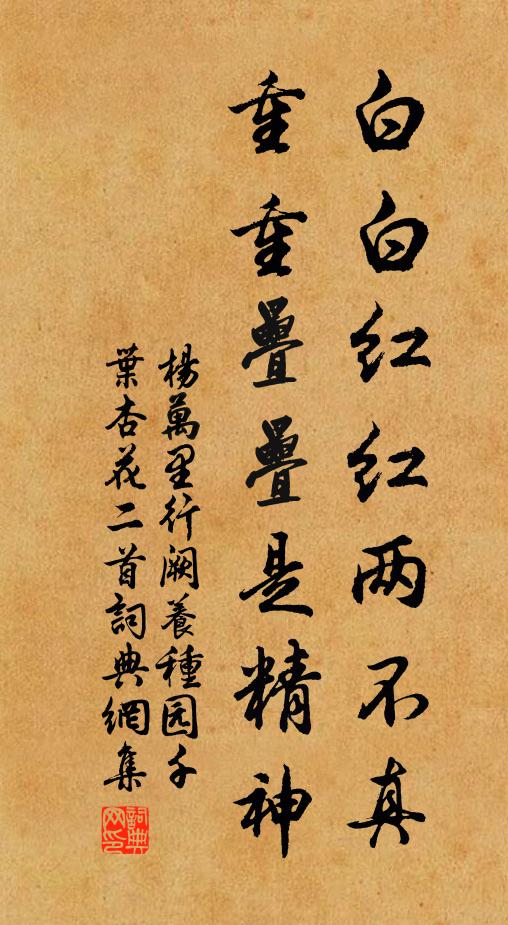 白白红红两不真
重重疊疊是精神
楊萬里行阙養種园千
葉杏花二首詞典網集
詞典网印